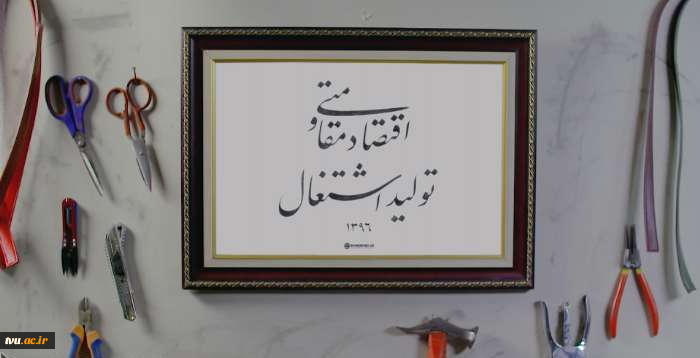 اقتصاد مقاومتی
تولید اشتغال
۱۳۹۶
tvu.ac.ir